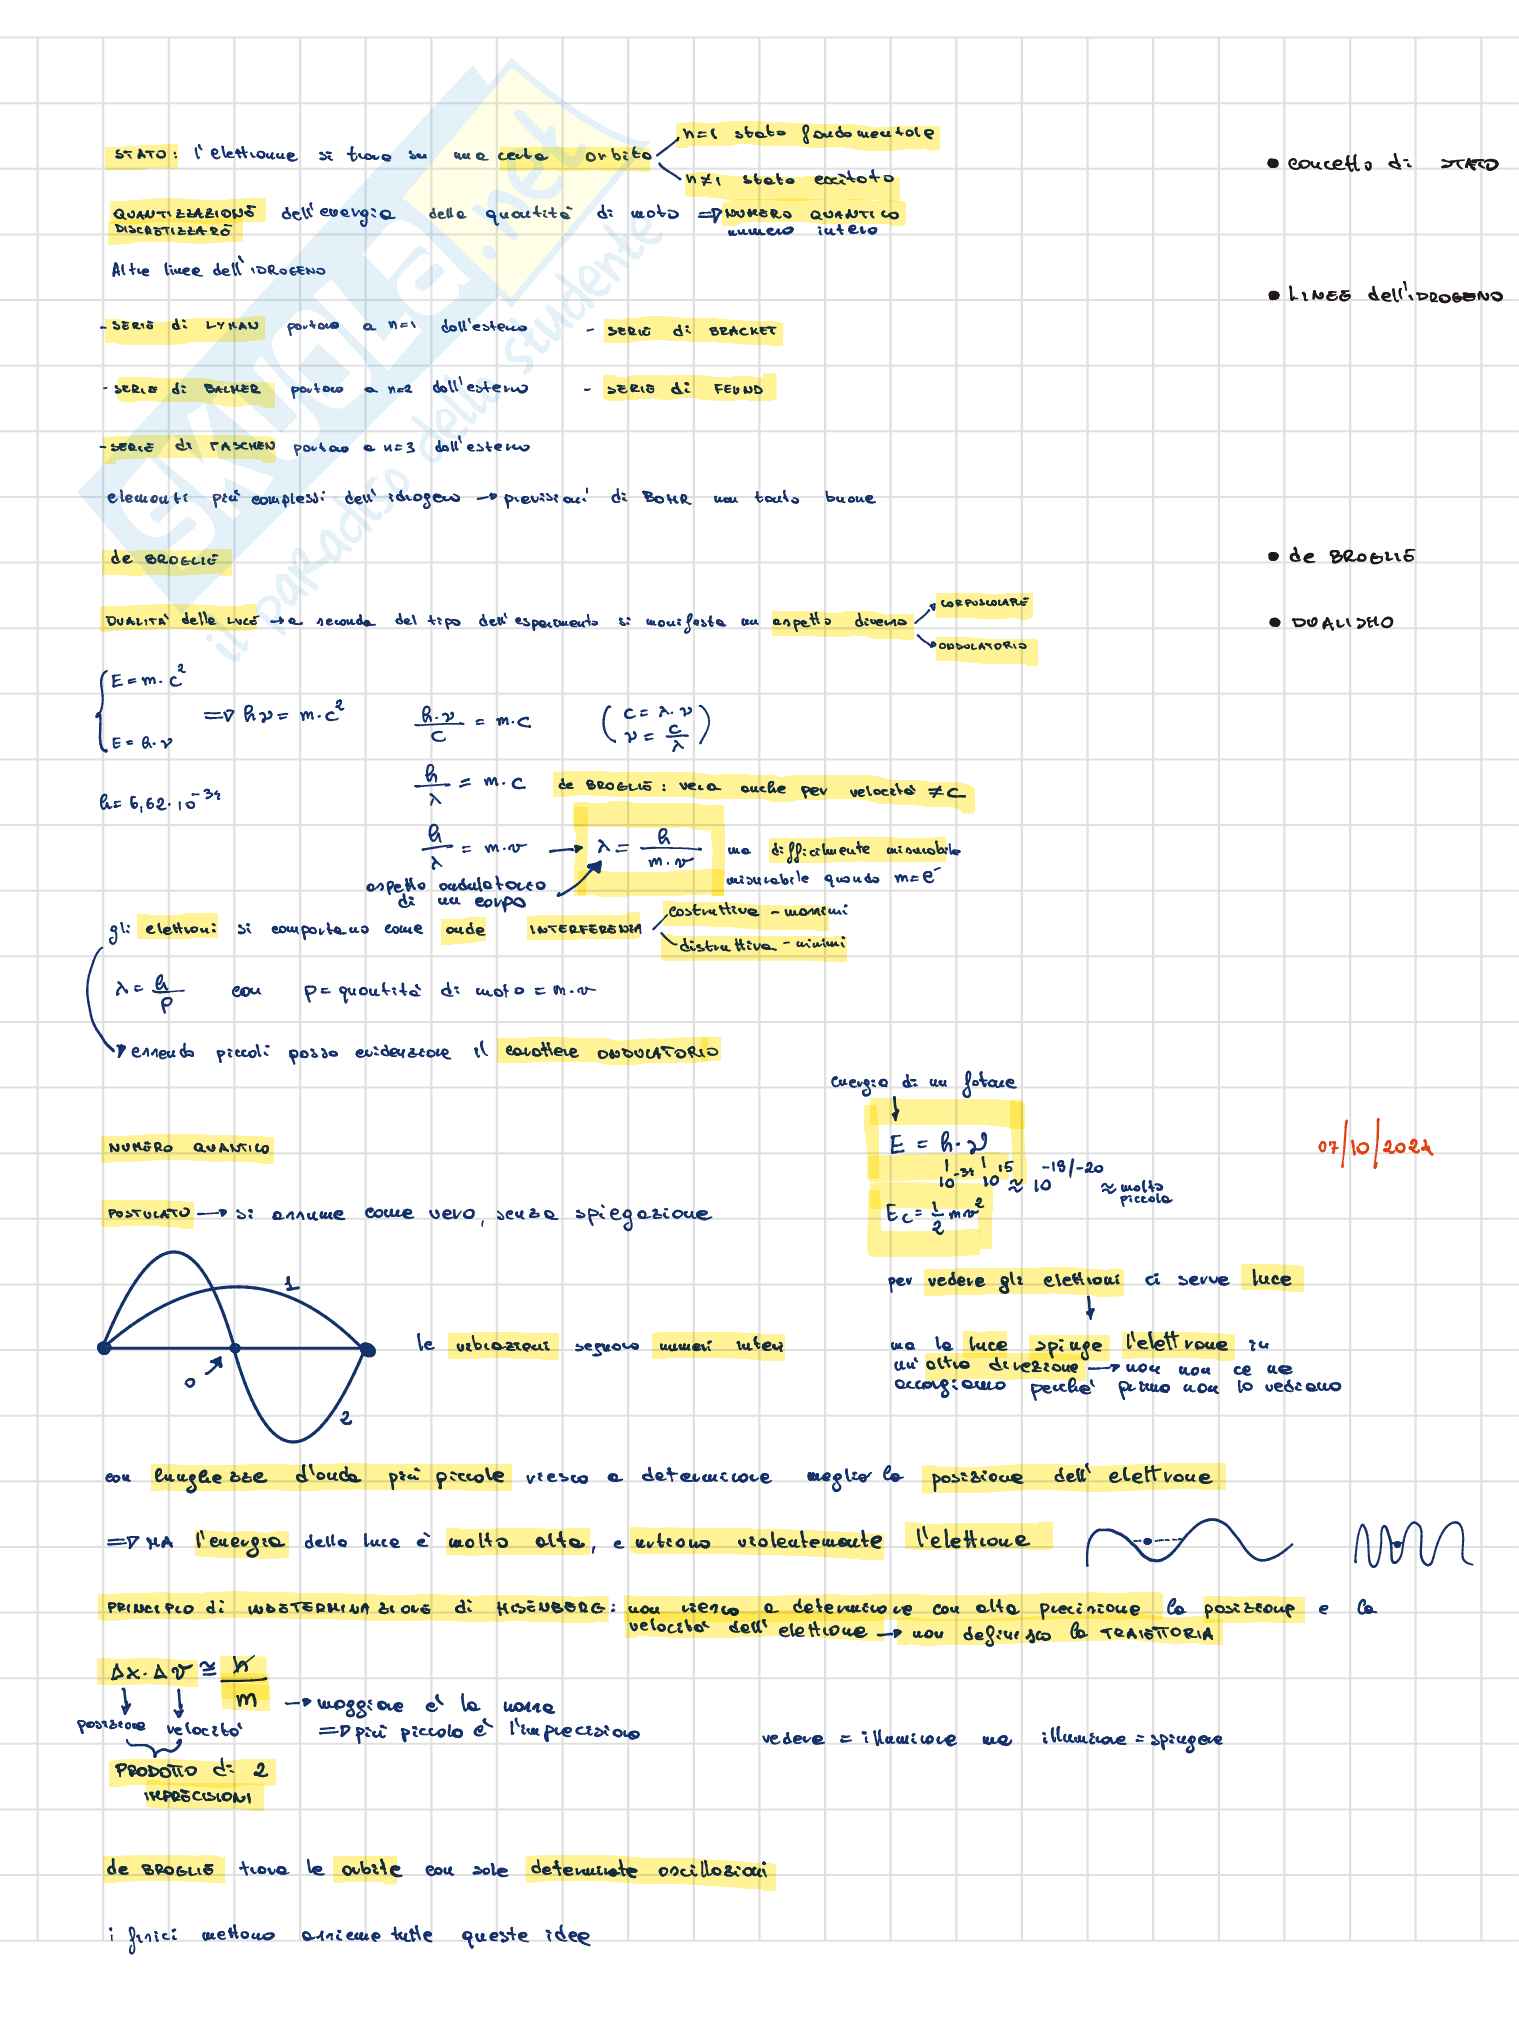 n=1 stato fondamentale
STATO: l'elettrone si trova su una certa orbita
n≠1 stato eccitato
• concetto di STATO
QUANTIZZAZIONE dell'energia della quantità di moto ⇒ NUMERO QUANTICO
DISCRETIZZARE numero intero
Altre linee dell'IDROGENO
• LINEE dell'IDROGENO
- SERIE di LYMAN portano a n=1 dall'esterno - SERIE di BRACKET
- SERIE di BALMER portano a n=2 dall'esterno - SERIE di FEUND
- SERIE di PASCHEN portano a n=3 dall'esterno
elementi più complessi dell'idrogeno → previsioni di BOHR non tanto buone
de BROGLIE
• de BROGLIE
DUALITA' della LUCE → a seconda del tipo dell'esperimento si manifesta un aspetto diverso
CORPUSCOLARE
ONDULATORIO
• DUALISMO
E = m·c²
E = h·ν
⇒ hν = m·c² h·ν/c = m·c ( c = λ·ν ν = c/λ )
h/λ = m·c de BROGLIE: vera anche per velocità ≠ c
h = 6,62·10⁻³⁴
h/λ = m·v → λ = h/m·v ma difficilmente misurabile
misurabile quando m = e⁻
aspetto ondulatorio
di un corpo
gli elettroni si comportano come onde INTERFERENZA
costruttiva - massimi
distruttiva - minimi
λ = h/p con p = quantità di moto = m·v
essendo piccoli posso evidenziare il carattere ONDULATORIO
energia di un fotone
E = h·ν
10⁻³⁴ 10¹⁵ ≈ 10⁻¹⁸/⁻²⁰ ≈ molto
piccola
Ec = 1/2 mv²
07/10/2021
NUMERO QUANTICO
POSTULATO → si assume come vero, senza spiegazione
1
0
2
le vibrazioni seguono numeri interi
per vedere gli elettroni ci serve luce
ma la luce spinge l'elettrone in
un'altra direzione → non non ce ne
accorgiamo perche' prima non lo vediamo
con lunghezze d'onda più piccole riesco a determinare meglio la posizione dell'elettrone
⇒ MA l'energia della luce è molto alta, e urtiamo violentemente l'elettrone
PRINCIPIO di INDETERMINAZIONE di HEISENBERG: non riesco a determinare con alta precisione la posizione e la
velocità dell'elettrone → non definisco la TRAIETTORIA
Δx·Δv ≅ ħ/m → maggiore e' la massa
⇒ più piccolo è l'imprecisione
posizione velocità
PRODOTTO di 2
IMPRECISIONI
vedere = illuminare ma illuminare = spingere
de BROGLIE trova le orbite con sole determinate oscillazioni
i fisici mettono assieme tutte queste idee
skuola.net
il paradiso dello studente